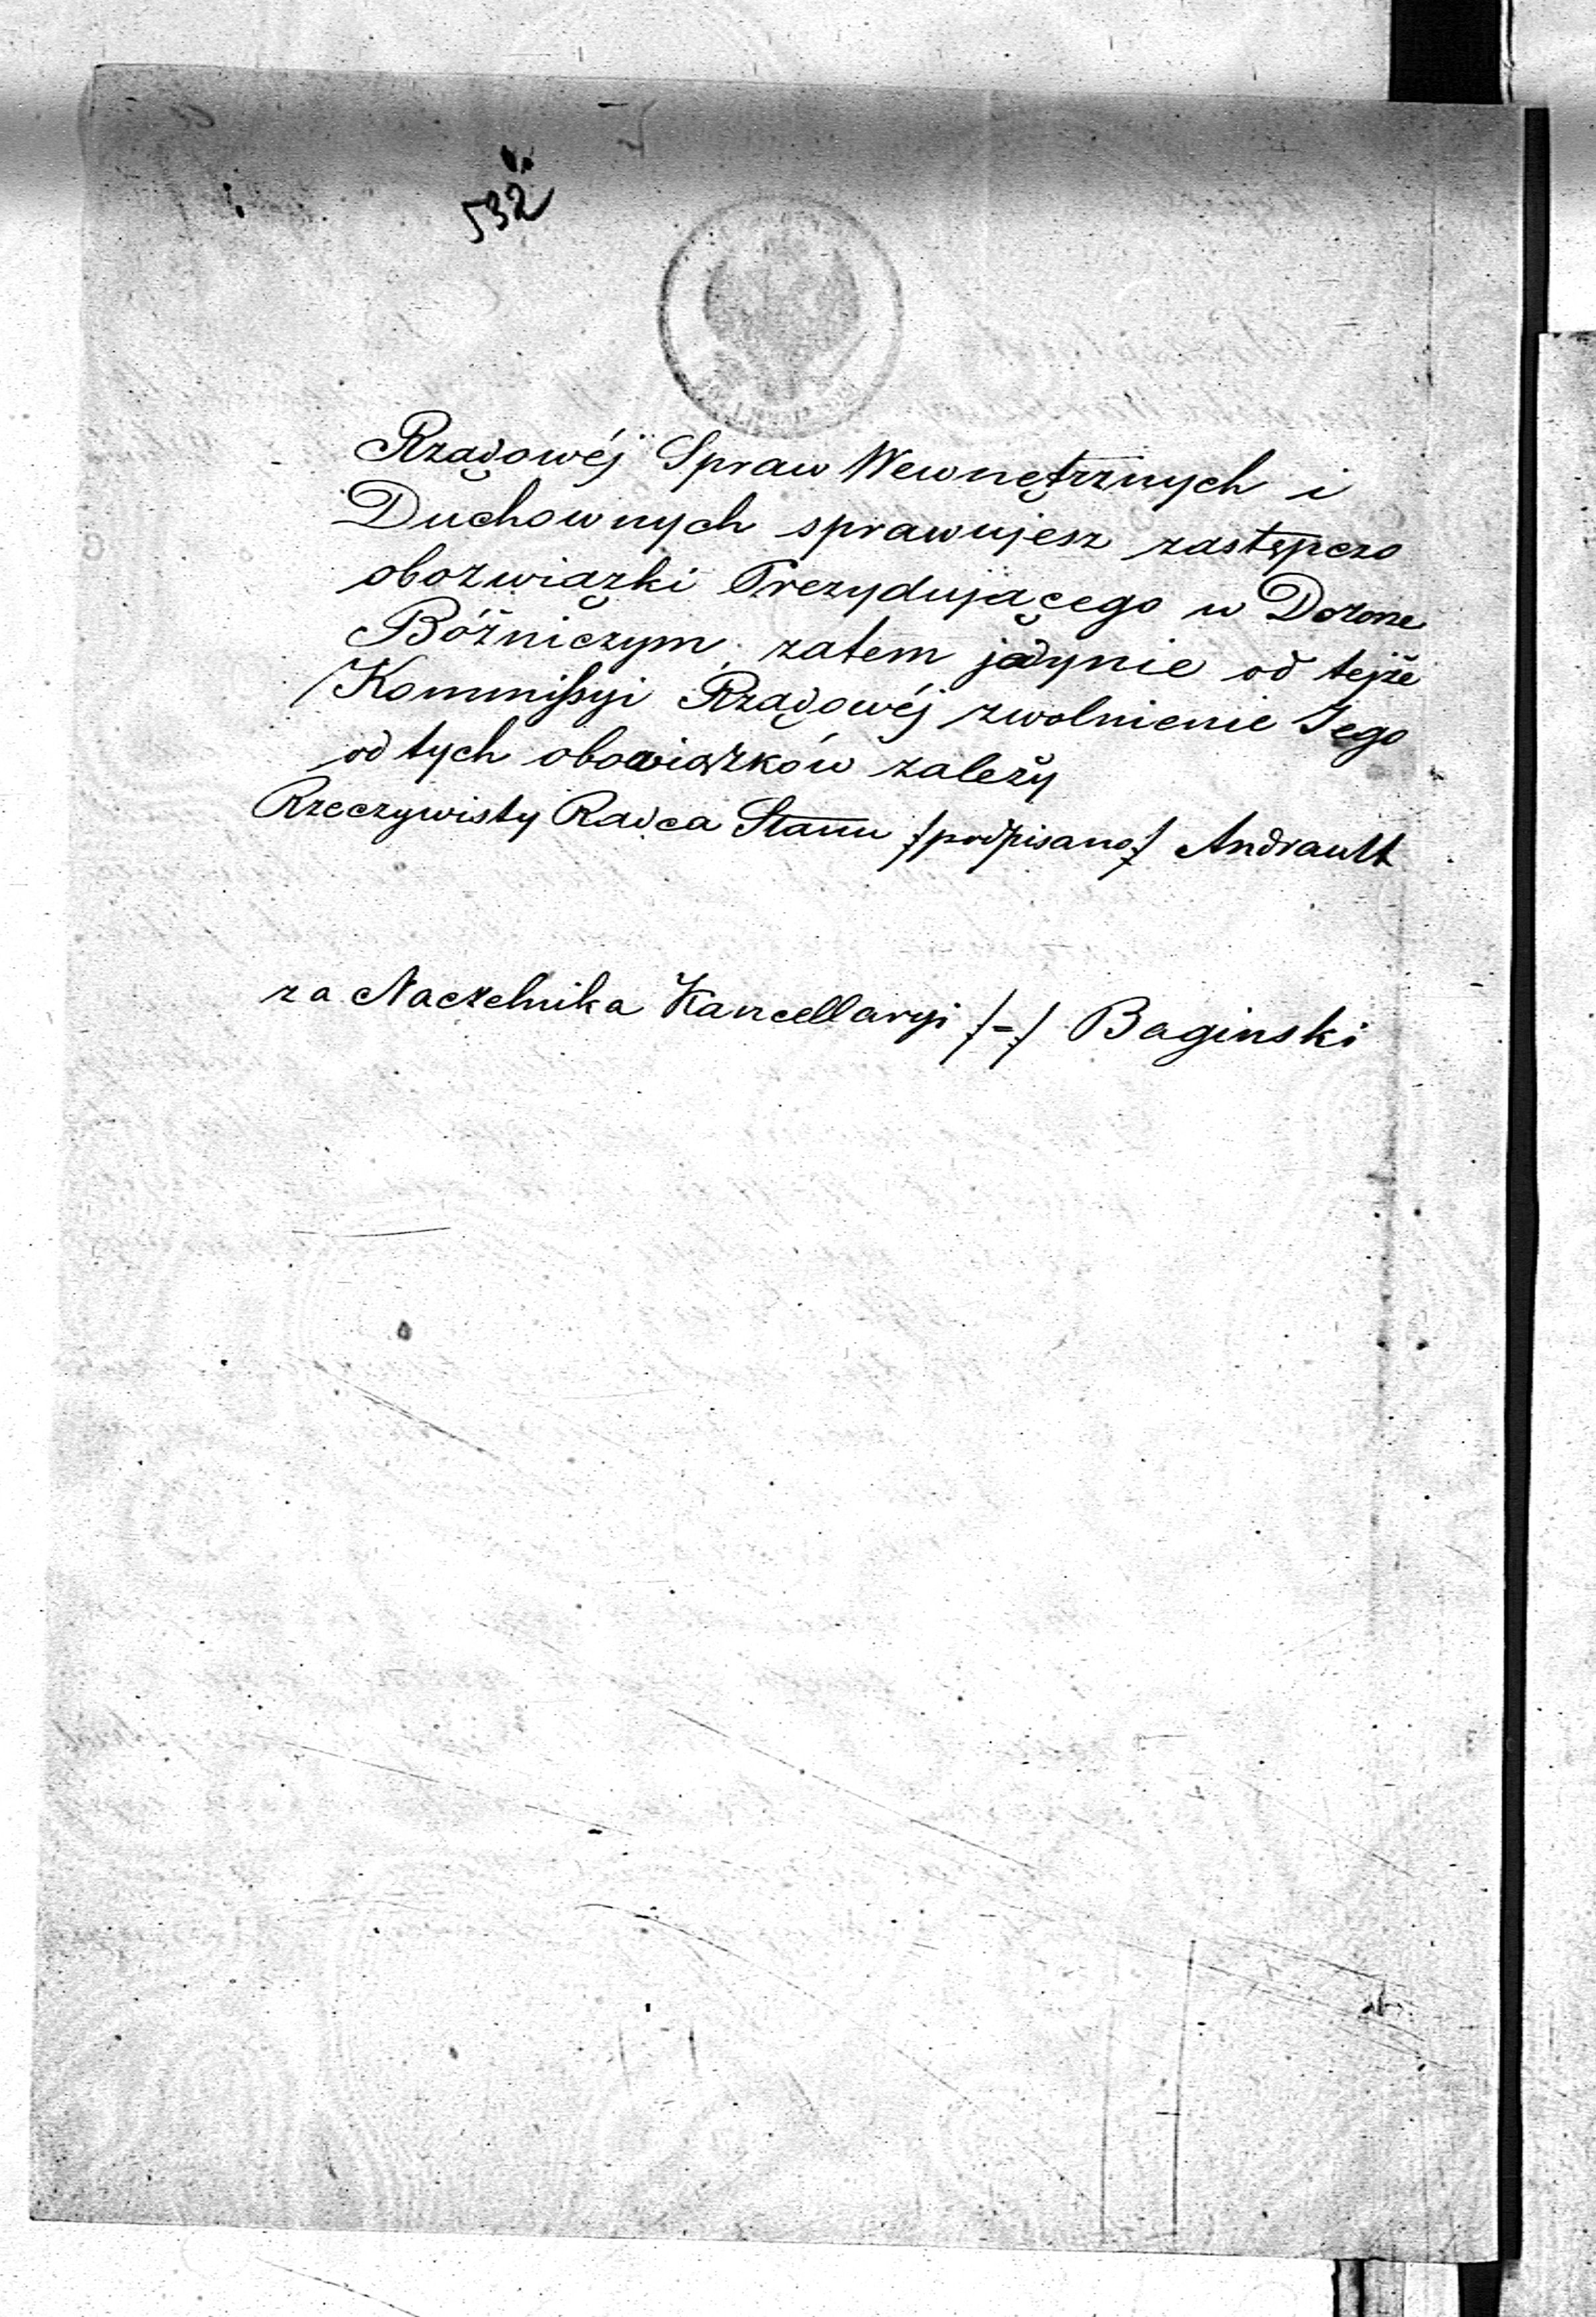 532
Rządowéj Spraw Wewnętrznych i
Duchownych sprawujesz zastępczo
obozwiązki Prezydującego w Dozorze
Bóżniczym, zatem jedynie od tejże
Kommissyi Rządowéj zwolnienie Jego
od tych obowiązków zależy
Rzeczywisty Radca Stanu /podpisano/ Andrault
za Naczelnika Kancellaryi /-/ Baginski